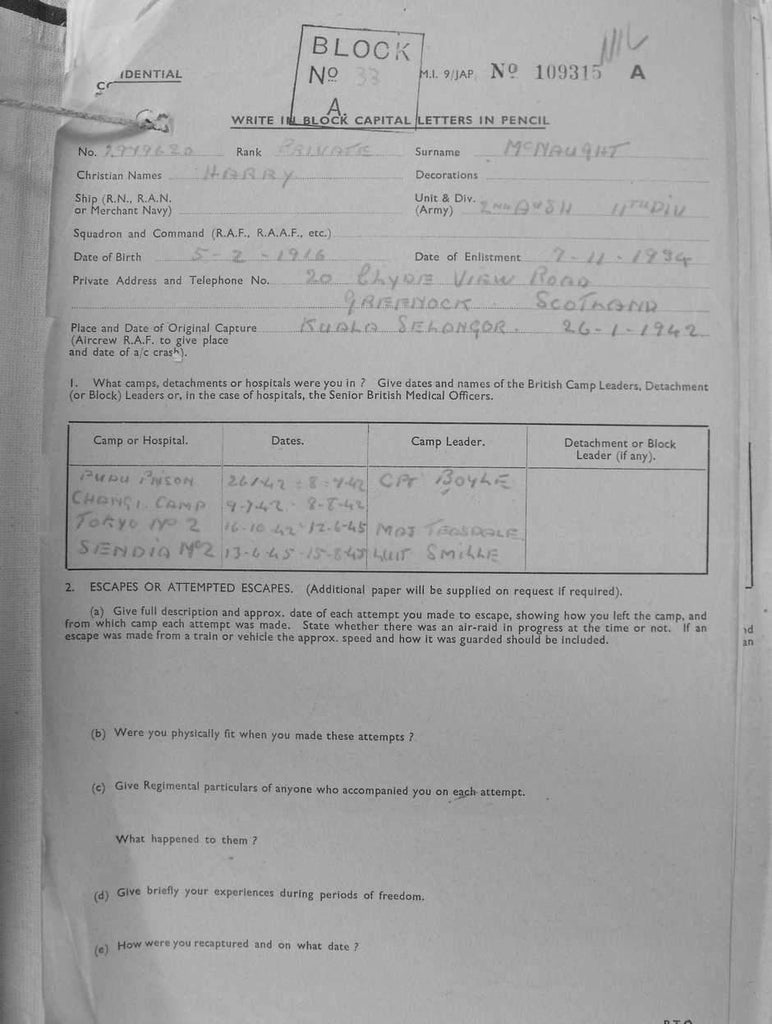 BLOCK
Nº 33
A
IDENTIAL
M.I. 9/JAP. Nº 109315 A
WRITE IN BLOCK CAPITAL LETTERS IN PENCIL
No. 2979620 Rank PRIVATE Surname McNAUGHT
Christian Names HARRY Decorations
Ship (R.N., R.A.N. or Merchant Navy) Unit & Div. (Army) 2ND A & SH 11TH DIV
Squadron and Command (R.A.F., R.A.A.F., etc.)
Date of Birth 5-2-1916 Date of Enlistment 7-11-1934
Private Address and Telephone No. 20 CLYDE VIEW ROAD
GREENOCK SCOTLAND
Place and Date of Original Capture KUALA SELANGOR. 26-1-1942
(Aircrew R.A.F. to give place
and date of a/c crash).
1. What camps, detachments or hospitals were you in ? Give dates and names of the British Camp Leaders, Detachment
(or Block) Leaders or, in the case of hospitals, the Senior British Medical Officers.
Camp or Hospital. Dates. Camp Leader. Detachment or Block Leader (if any).
PUDU PRISON CPT BOYLE
CHANGI CAMP 9-7-42 - 8-8-42
TOKYO Nº 2 16-10-42 - 12-6-45 MAJ
SENDIA Nº2 13-6-45 - 15-8-45 SMILLE
2. ESCAPES OR ATTEMPTED ESCAPES. (Additional paper will be supplied on request if required).
(a) Give full description and approx. date of each attempt you made to escape, showing how you left the camp, and
from which camp each attempt was made. State whether there was an air-raid in progress at the time or not. If an
escape was made from a train or vehicle the approx. speed and how it was guarded should be included.
(b) Were you physically fit when you made these attempts ?
(c) Give Regimental particulars of anyone who accompanied you on each attempt.
What happened to them ?
(d) Give briefly your experiences during periods of freedom.
(e) How were you recaptured and on what date ?